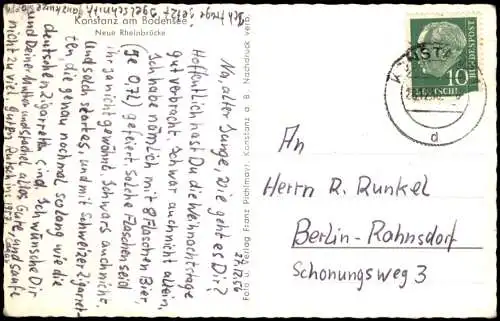 Konstanz am Bodensee
Neue Rheinbrücke
27.12.56
Na, alter Junge, wie geht es Dir?
Hoffentlich hast Du die Weihnachtstage
gut verbracht. Ich war auch nicht allein,
ich habe nämlich mit 8 Flaschen Bier,
(je 0,7 L) gefeiert. Solche Flaschen seid
ihr ja nicht gewöhnt. Ich wars auch nicht.
Und sach startes, und mit Schweizer Zigaret-
ten, die genau nochmal so lang wie die
deutschen Zigaretten sind. Ich wünsche Dir
und Deiner Mutter und spachel alles Gute und saufe
nicht zu viel. guten Rutsch ins 1957
Ich trage jetzt Igelschnitt
ganz kurze
Foto u. Verlag Franz Pichlmair, Konstanz a. B. Nachdruck verb.
DEUTSCHE BUNDESPOST
10
KONSTANZ
d
An
Herrn R. Runkel
Berlin-Rahnsdorf
Schonungsweg 3